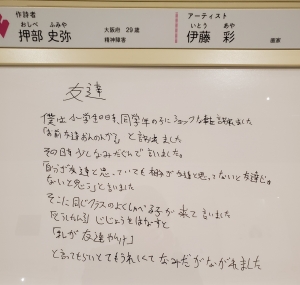 作詩者
おしべ ふみや
押部 史弥
大阪府 29歳
精神障害
アーティスト
いとう あや
伊藤 彩
画家
友達
僕は小学生の時、同学年の子にショックな事を言われました
「お前友達おんのんか?」と言われました
その日少しなみだぐんで言いました。
「自分が友達と思っていても相手が友達と思ってないと友達じゃ
ないと思う」と言いました
そこに同じクラスのよくしゃべる子が来て言いました
「どうしたん?」じじょうをはなすと
「私が友達やんけ」
と言ってもらいとてもうれしくてなみだがながれました